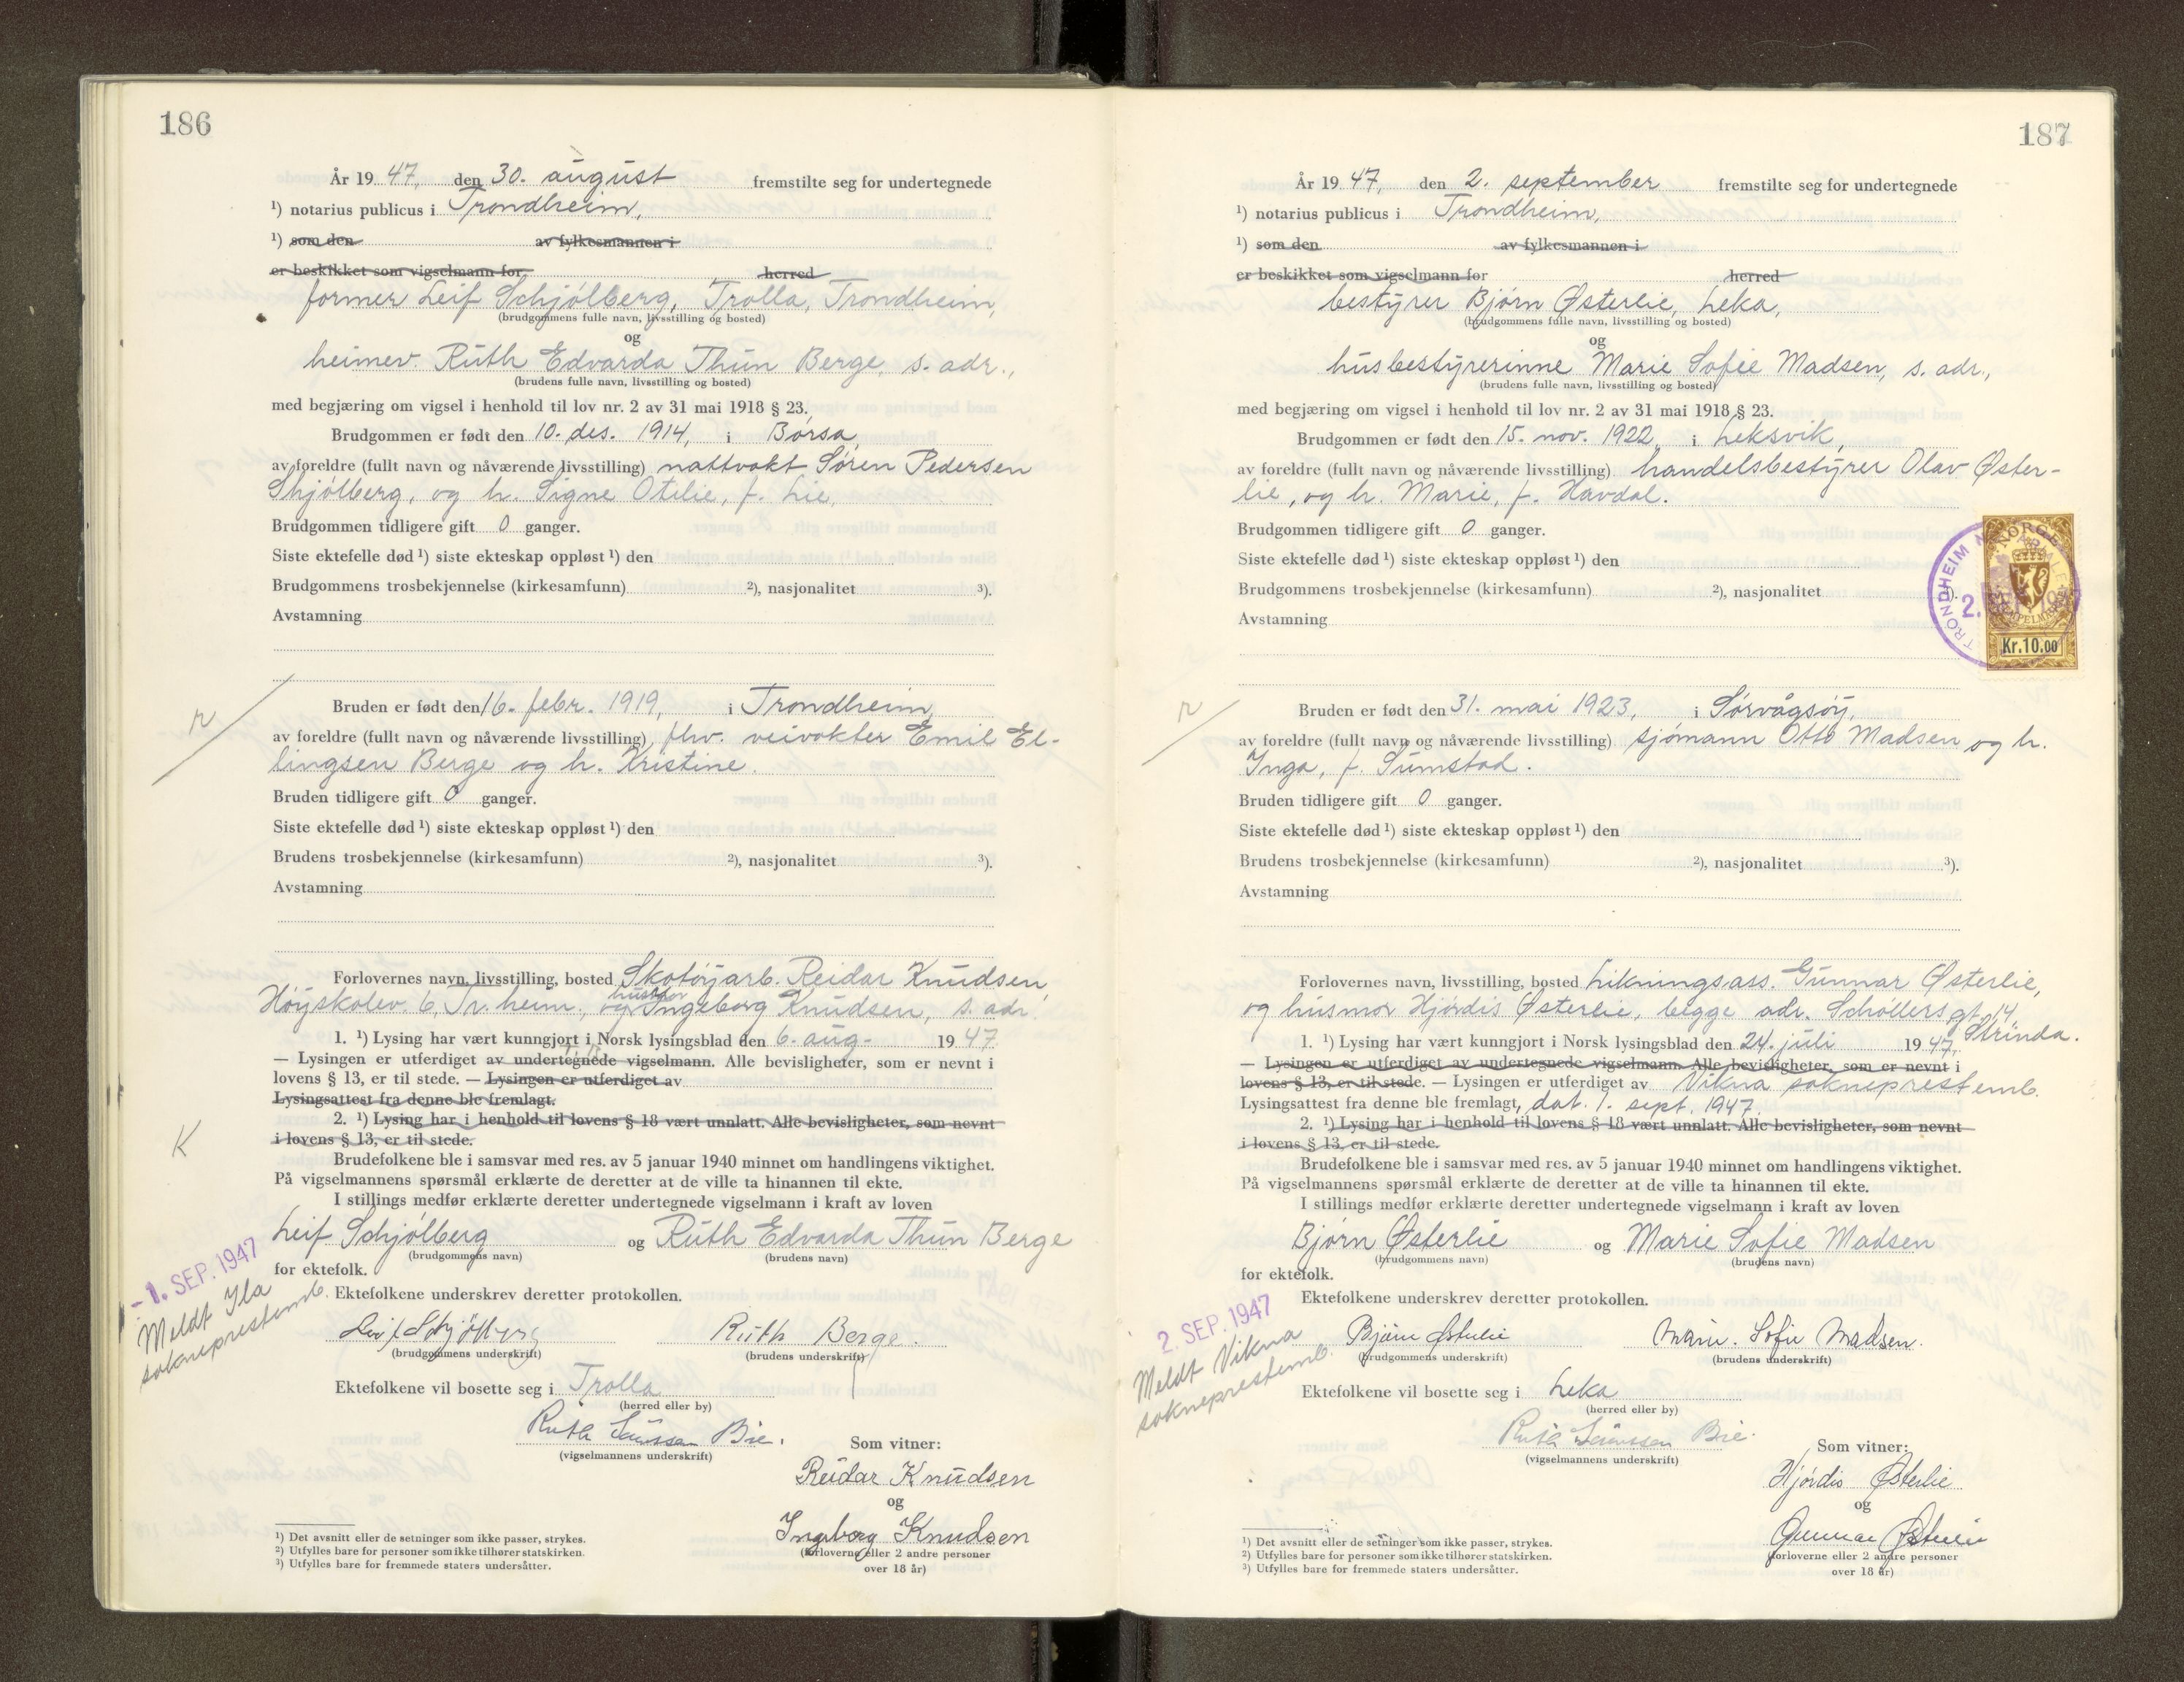 186
År 19 47, den 30. august fremstilte seg for undertegnede
¹) notarius publicus i Trondheim,
¹) som den av fylkesmannen i
er beskikket som vigselmann for herred
former Leif Schjølberg, Trolla, Trondheim,
(brudgommens fulle navn, livsstilling og bosted)
og
heimev. Ruth Edvarda Thun Berge, s. adr.,
(brudens fulle navn, livsstilling og bosted)
med begjæring om vigsel i henhold til lov nr. 2 av 31 mai 1918 § 23.
Brudgommen er født den 10. des. 1914, i Børsa,
av foreldre (fullt navn og nåværende livsstilling) nattvakt Søren Pedersen
Skjølberg, og h. Signe Otilie, f. Lie,
Brudgommen tidligere gift 0 ganger.
Siste ektefelle død ¹) siste ekteskap oppløst ¹) den
Brudgommens trosbekjennelse (kirkesamfunn) ²), nasjonalitet ³).
Avstamning
Bruden er født den 16. febr. 1919, i Trondheim,
av foreldre (fullt navn og nåværende livsstilling) fhv. veivokter Emil El-
lingsen Berge og h. Kristine.
Bruden tidligere gift 0 ganger.
Siste ektefelle død ¹) siste ekteskap oppløst ¹) den
Brudens trosbekjennelse (kirkesamfunn) ²), nasjonalitet ³).
Avstamning
Forlovernes navn, livsstilling, bosted Skotøyarb. Reidar Knudsen,
Høyskolev. 6, Tr.heim, og hustru Ingeborg Knudsen, s. adr.
1. ¹) Lysing har vært kunngjort i Norsk lysingsblad den 6. aug. 19 47.
— Lysingen er utferdiget av undertegnede vigselmann. Alle bevisligheter, som er nevnt i
lovens § 13, er til stede. — Lysingen er utferdiget av
Lysingsattest fra denne ble fremlagt.
2. ¹) Lysing har i henhold til lovens § 18 vært unnlatt. Alle bevisligheter, som nevnt
i lovens § 13, er til stede.
K
Brudefolkene ble i samsvar med res. av 5 januar 1940 minnet om handlingens viktighet.
På vigselmannens spørsmål erklærte de deretter at de ville ta hinannen til ekte.
I stillings medfør erklærte deretter undertegnede vigselmann i kraft av loven
Leif Schjølberg og Ruth Edvarda Thun Berge
(brudgommens navn) (brudens navn)
for ektefolk.
- 1. SEP. 1947
Meldt Ila
sokneprestemb.
Ektefolkene underskrev deretter protokollen.
Leif Schjølberg Ruth Berge.
(brudgommens underskrift) (brudens underskrift)
Ektefolkene vil bosette seg i Trolla
(herred eller by)
Ruth Bie.
(vigselmannens underskrift)
Som vitner:
Reidar Knudsen
og
Ingeborg Knudsen
(forloverne eller 2 andre personer
over 18 år)
¹) Det avsnitt eller de setninger som ikke passer, strykes.
²) Utfylles bare for personer som ikke tilhører statskirken.
³) Utfylles bare for fremmede staters undersåtter.
187
År 19 47, den 2. september fremstilte seg for undertegnede
¹) notarius publicus i Trondheim,
¹) som den av fylkesmannen i
er beskikket som vigselmann for herred
bestyrer Bjørn Østerlie, Leka,
(brudgommens fulle navn, livsstilling og bosted)
og
husbestyrerinne Marie Sofie Madsen, s. adr.,
(brudens fulle navn, livsstilling og bosted)
med begjæring om vigsel i henhold til lov nr. 2 av 31 mai 1918 § 23.
Brudgommen er født den 15. nov. 1922, i Leksvik,
av foreldre (fullt navn og nåværende livsstilling) handelsbestyrer Olav Øster-
lie, og h. Marie, f. Havdal.
Brudgommen tidligere gift 0 ganger.
Siste ektefelle død ¹) siste ekteskap oppløst ¹) den
Brudgommens trosbekjennelse (kirkesamfunn) ²), nasjonalitet ³).
Avstamning
TRONDHEIM
2.
NORGE
Kr.10.00
Bruden er født den 31. mai 1923, i Sørvågsøy,
av foreldre (fullt navn og nåværende livsstilling) sjømann Otto Madsen og h.
Inga, f. Sumstad.
Bruden tidligere gift 0 ganger.
Siste ektefelle død ¹) siste ekteskap oppløst ¹) den
Brudens trosbekjennelse (kirkesamfunn) ²), nasjonalitet ³).
Avstamning
Forlovernes navn, livsstilling, bosted Likningsass. Gunnar Østerlie,
og husmor Hjørdis Østerlie, begge adr. Schøllers gt. 14,
Strinda.
1. ¹) Lysing har vært kunngjort i Norsk lysingsblad den 24. juli 19 47,
— Lysingen er utferdiget av undertegnede vigselmann. Alle bevisligheter, som er nevnt i
lovens § 13, er til stede. — Lysingen er utferdiget av Vikna sokneprestemb.
Lysingsattest fra denne ble fremlagt, dat. 1. sept. 1947.
2. ¹) Lysing har i henhold til lovens § 18 vært unnlatt. Alle bevisligheter, som nevnt
i lovens § 13, er til stede.
Brudefolkene ble i samsvar med res. av 5 januar 1940 minnet om handlingens viktighet.
På vigselmannens spørsmål erklærte de deretter at de ville ta hinannen til ekte.
I stillings medfør erklærte deretter undertegnede vigselmann i kraft av loven
Bjørn Østerlie og Marie Sofie Madsen
(brudgommens navn) (brudens navn)
for ektefolk.
2. SEP. 1947
Meldt Vikna
sokneprestemb.
Ektefolkene underskrev deretter protokollen.
Bjørn Østerlie Marie Sofie Madsen.
(brudgommens underskrift) (brudens underskrift)
Ektefolkene vil bosette seg i Leka
(herred eller by)
Ruth Bie.
(vigselmannens underskrift)
Som vitner:
Hjørdis Østerlie
og
Gunnar Østerlie
(forloverne eller 2 andre personer
over 18 år)
¹) Det avsnitt eller de setninger som ikke passer, strykes.
²) Utfylles bare for personer som ikke tilhører statskirken.
³) Utfylles bare for fremmede staters undersåtter.